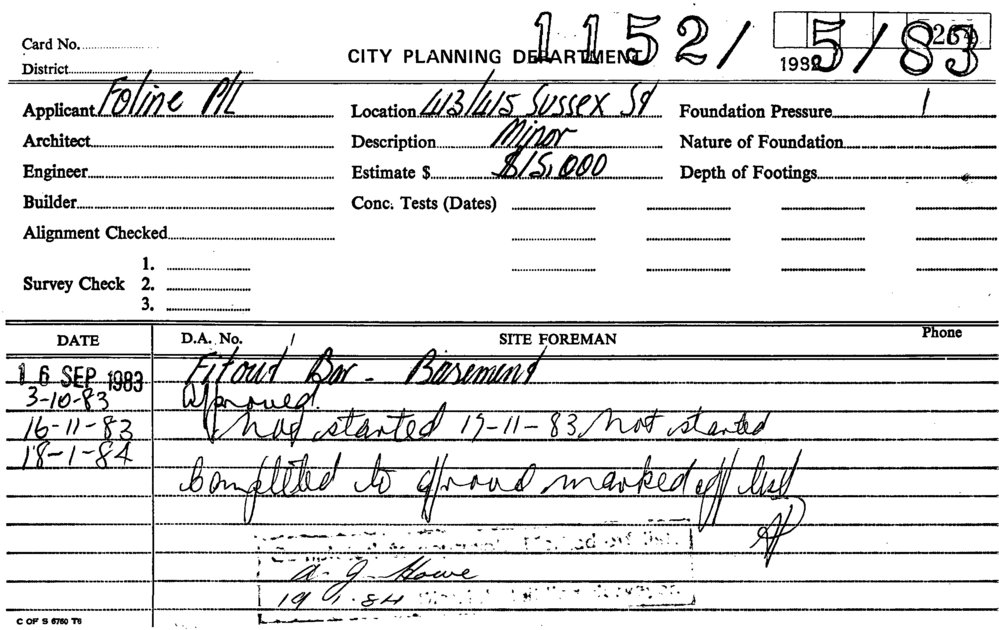 Card No.
1152/5/83
264
CITY PLANNING DEPARTMENT
198
District
Applicant Foline P/L Location 413/415 Sussex St Foundation Pressure
Architect Description Minor Nature of Foundation
Engineer Estimate $ $15,000 Depth of Footings
Builder Conc. Tests (Dates)
Alignment Checked
1.
Survey Check 2.
3.
DATE D.A. No. SITE FOREMAN Phone
16 SEP 1983 Fitout Bar - Basement
3-10-83 Approved.
16-11-83 Not started 17-11-83 Not started
18-1-84
Completed to approval marked off list
AP
marked off list.
A. J. Howe
19 1.84
C OF S 6760 T6